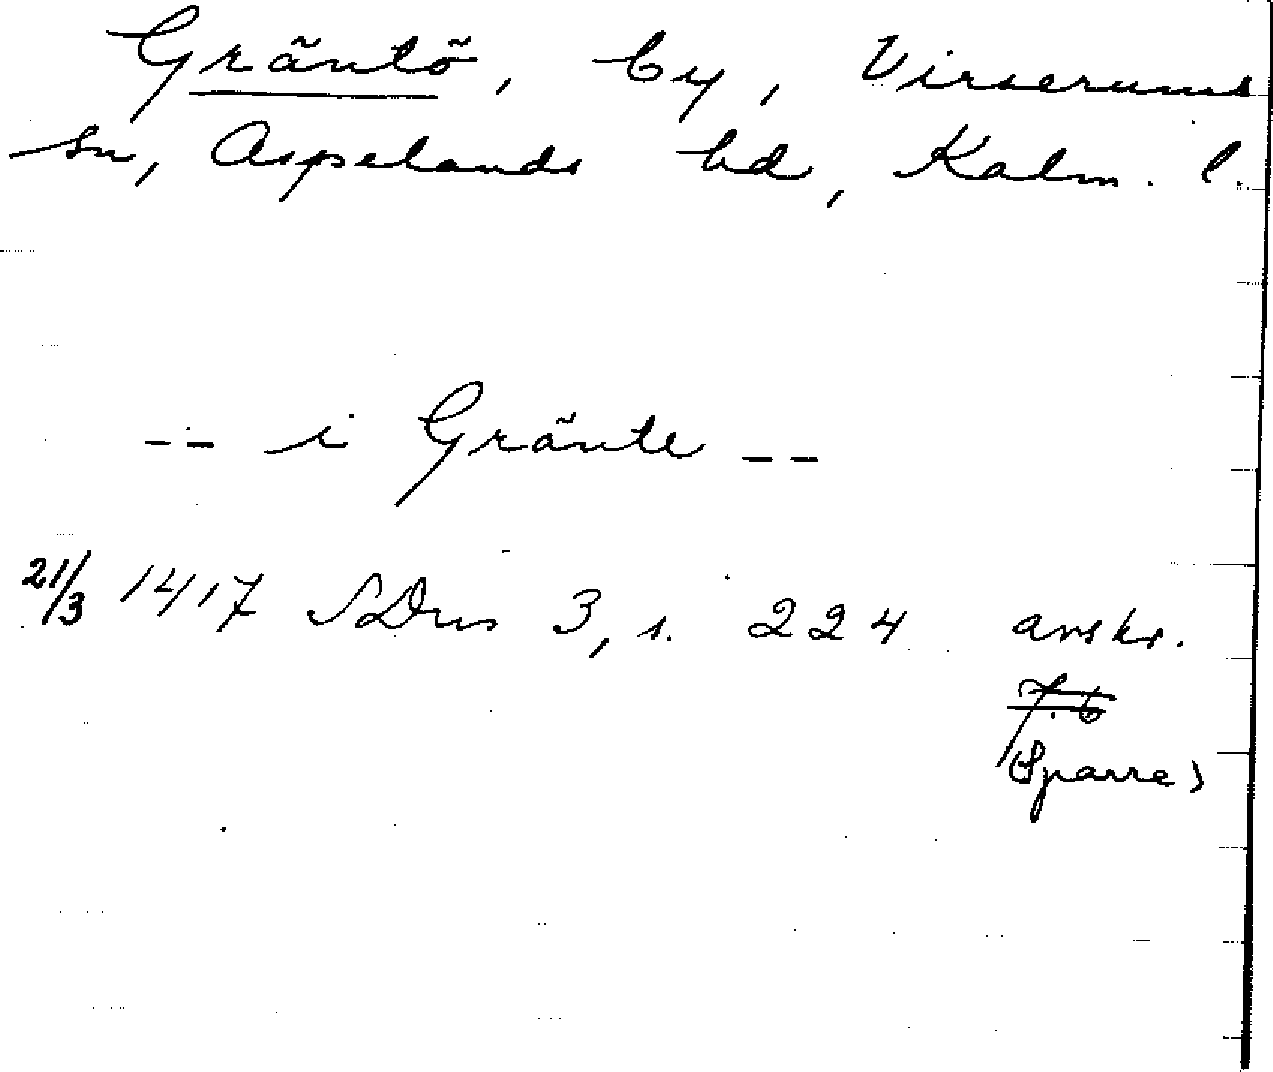 Gräntö, by, Virserums
sn, Aspelands hd, Kalm. l.
-- i Gränte --
21/3 1417 SDns 3, s. 224 avskr.
Sparre)